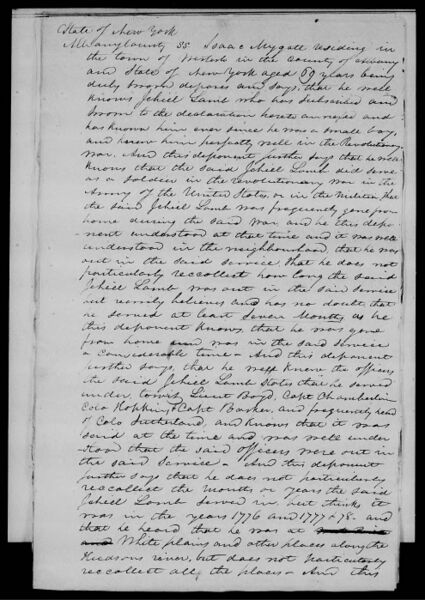 State of New York
Albany County ss Isaac Mygatt residing in
the town of Westerlo in the County of Albany
and State of New York aged 69 years being
duly sworn deposes and says, that he well
knows Jehiel Lamb who has subscribed and
sworn to the declaration hereto annexed and
has known him ever since he was a small boy,
and knew him perfectly well in the Revolutionary
War. And this deponent further says that he well
knows that the said Jehiel Lamb did serve
as a soldier in the Revolutionary War in the
Army of the United States, or in the Militia that
the said Jehiel Lamb was frequently gone from
home during the said War and he this depo-
nent understood at that time and it was well
understood in the neighbourhood that he was
out in the said service, that he does not
particularly reccollect how long the said
Jehiel Lamb was out in the said service
but verrily believes and has no doubt that
he served at least seven Months as he
this deponent knows, that he was gone
from home and was in the said service
a considerable time - And this deponent
further says, that he well knew the officers
the said Jehiel Lamb States that he served
under, towit, Lieut Boyd, Capt Chamberlin
Colo Hopkins, Capt Barker, and frequently heard
of Colo Sutherland, and knows that it was
said at the time and was well under
stood that the said officers were out in
the said service - And this deponent
further says that he does not particularly
reccollect the Months or years the said
Jehiel Lamb served in, but thinks it
was in the years 1776 and 1777 & 78 - and
that he heard that he was at
White plains and other places along the
Hudsons river, but does not particularly
reccollect all the places - And this